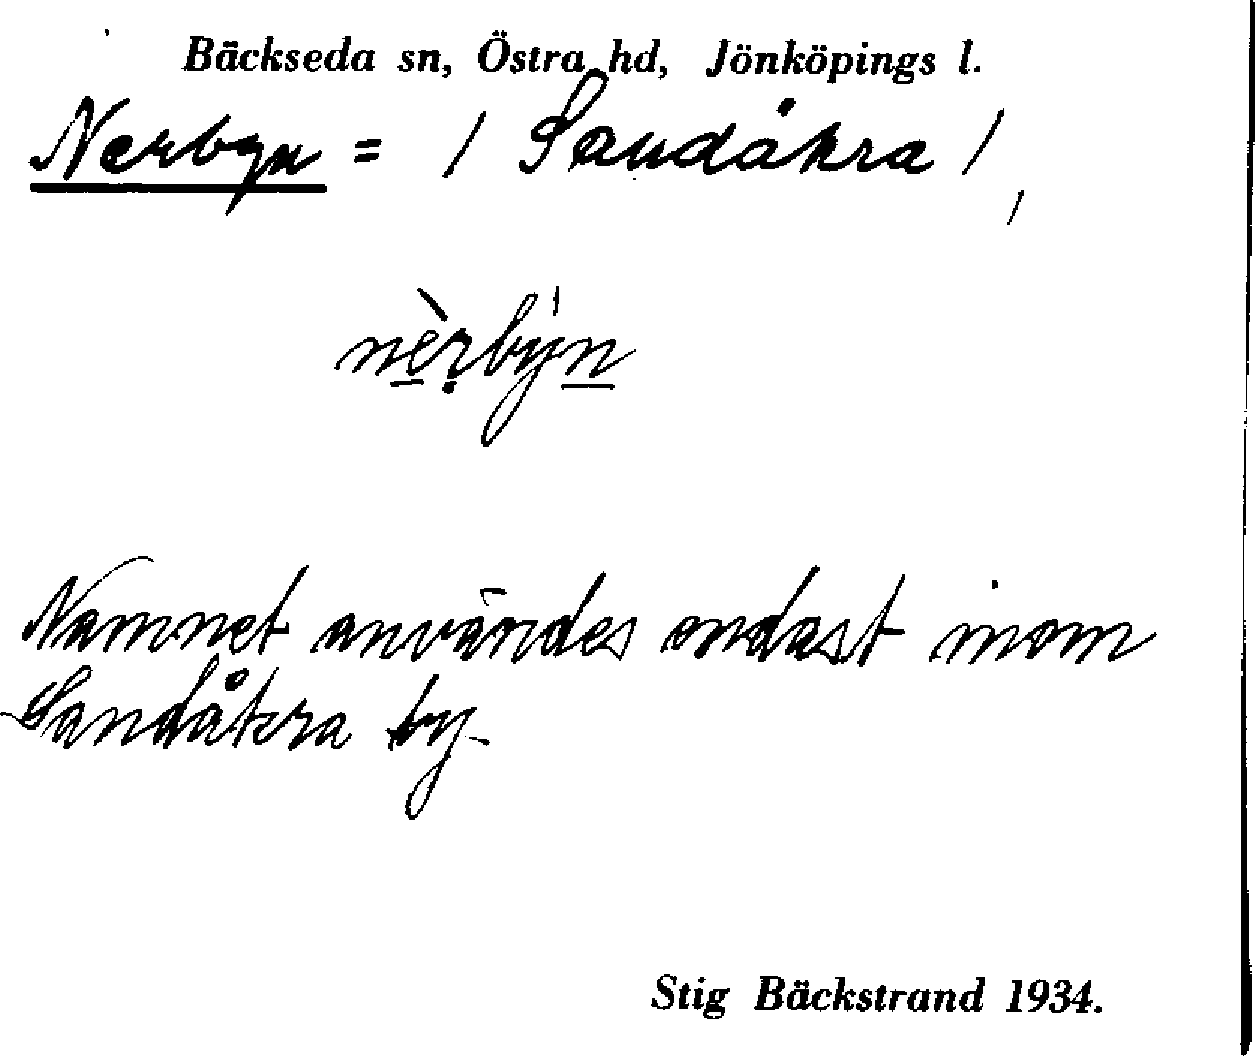 Bäckseda sn, Östra hd, Jönköpings l.
Nerbyn = / Sandåkra /
nèr̥býn
Namnet användes endast inom
Sandåkra by.
Stig Bäckstrand 1934.